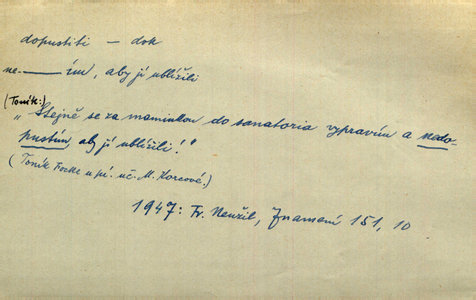 dopustiti – dok
ne-——ím, aby jí ublížili
(Toník:)
"Stejně se za maminkou do sanatoria vypravím a nedo-
pustím aby jí ublížili!"
(Toník u pí. uč. M. Horcové.)
1947: Fr. Neužil, Znamení 151, 10